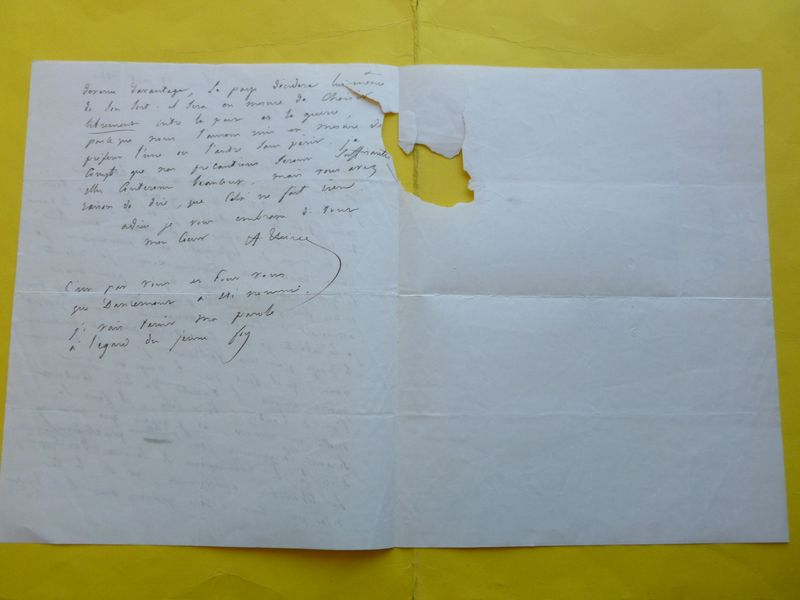 davantage, Le pays décidera lui-même
de son sort. il sera en mesure de choisir
librement entre la paix et la guerre,
parce que nous l'aurons mis en mesure de
préférer l'une ou l'autre sans périr. je
compte que nos précautions seront suffisantes
elles couteront beaucoup, mais vous avez
raison de dire, que cela ne fait rien
adieu je vous embrasse de tout
mon coeur A Thiers
C'est par vous et pour vous
que a été nommé.
je vais tenir ma parole
à l'égard du jeune